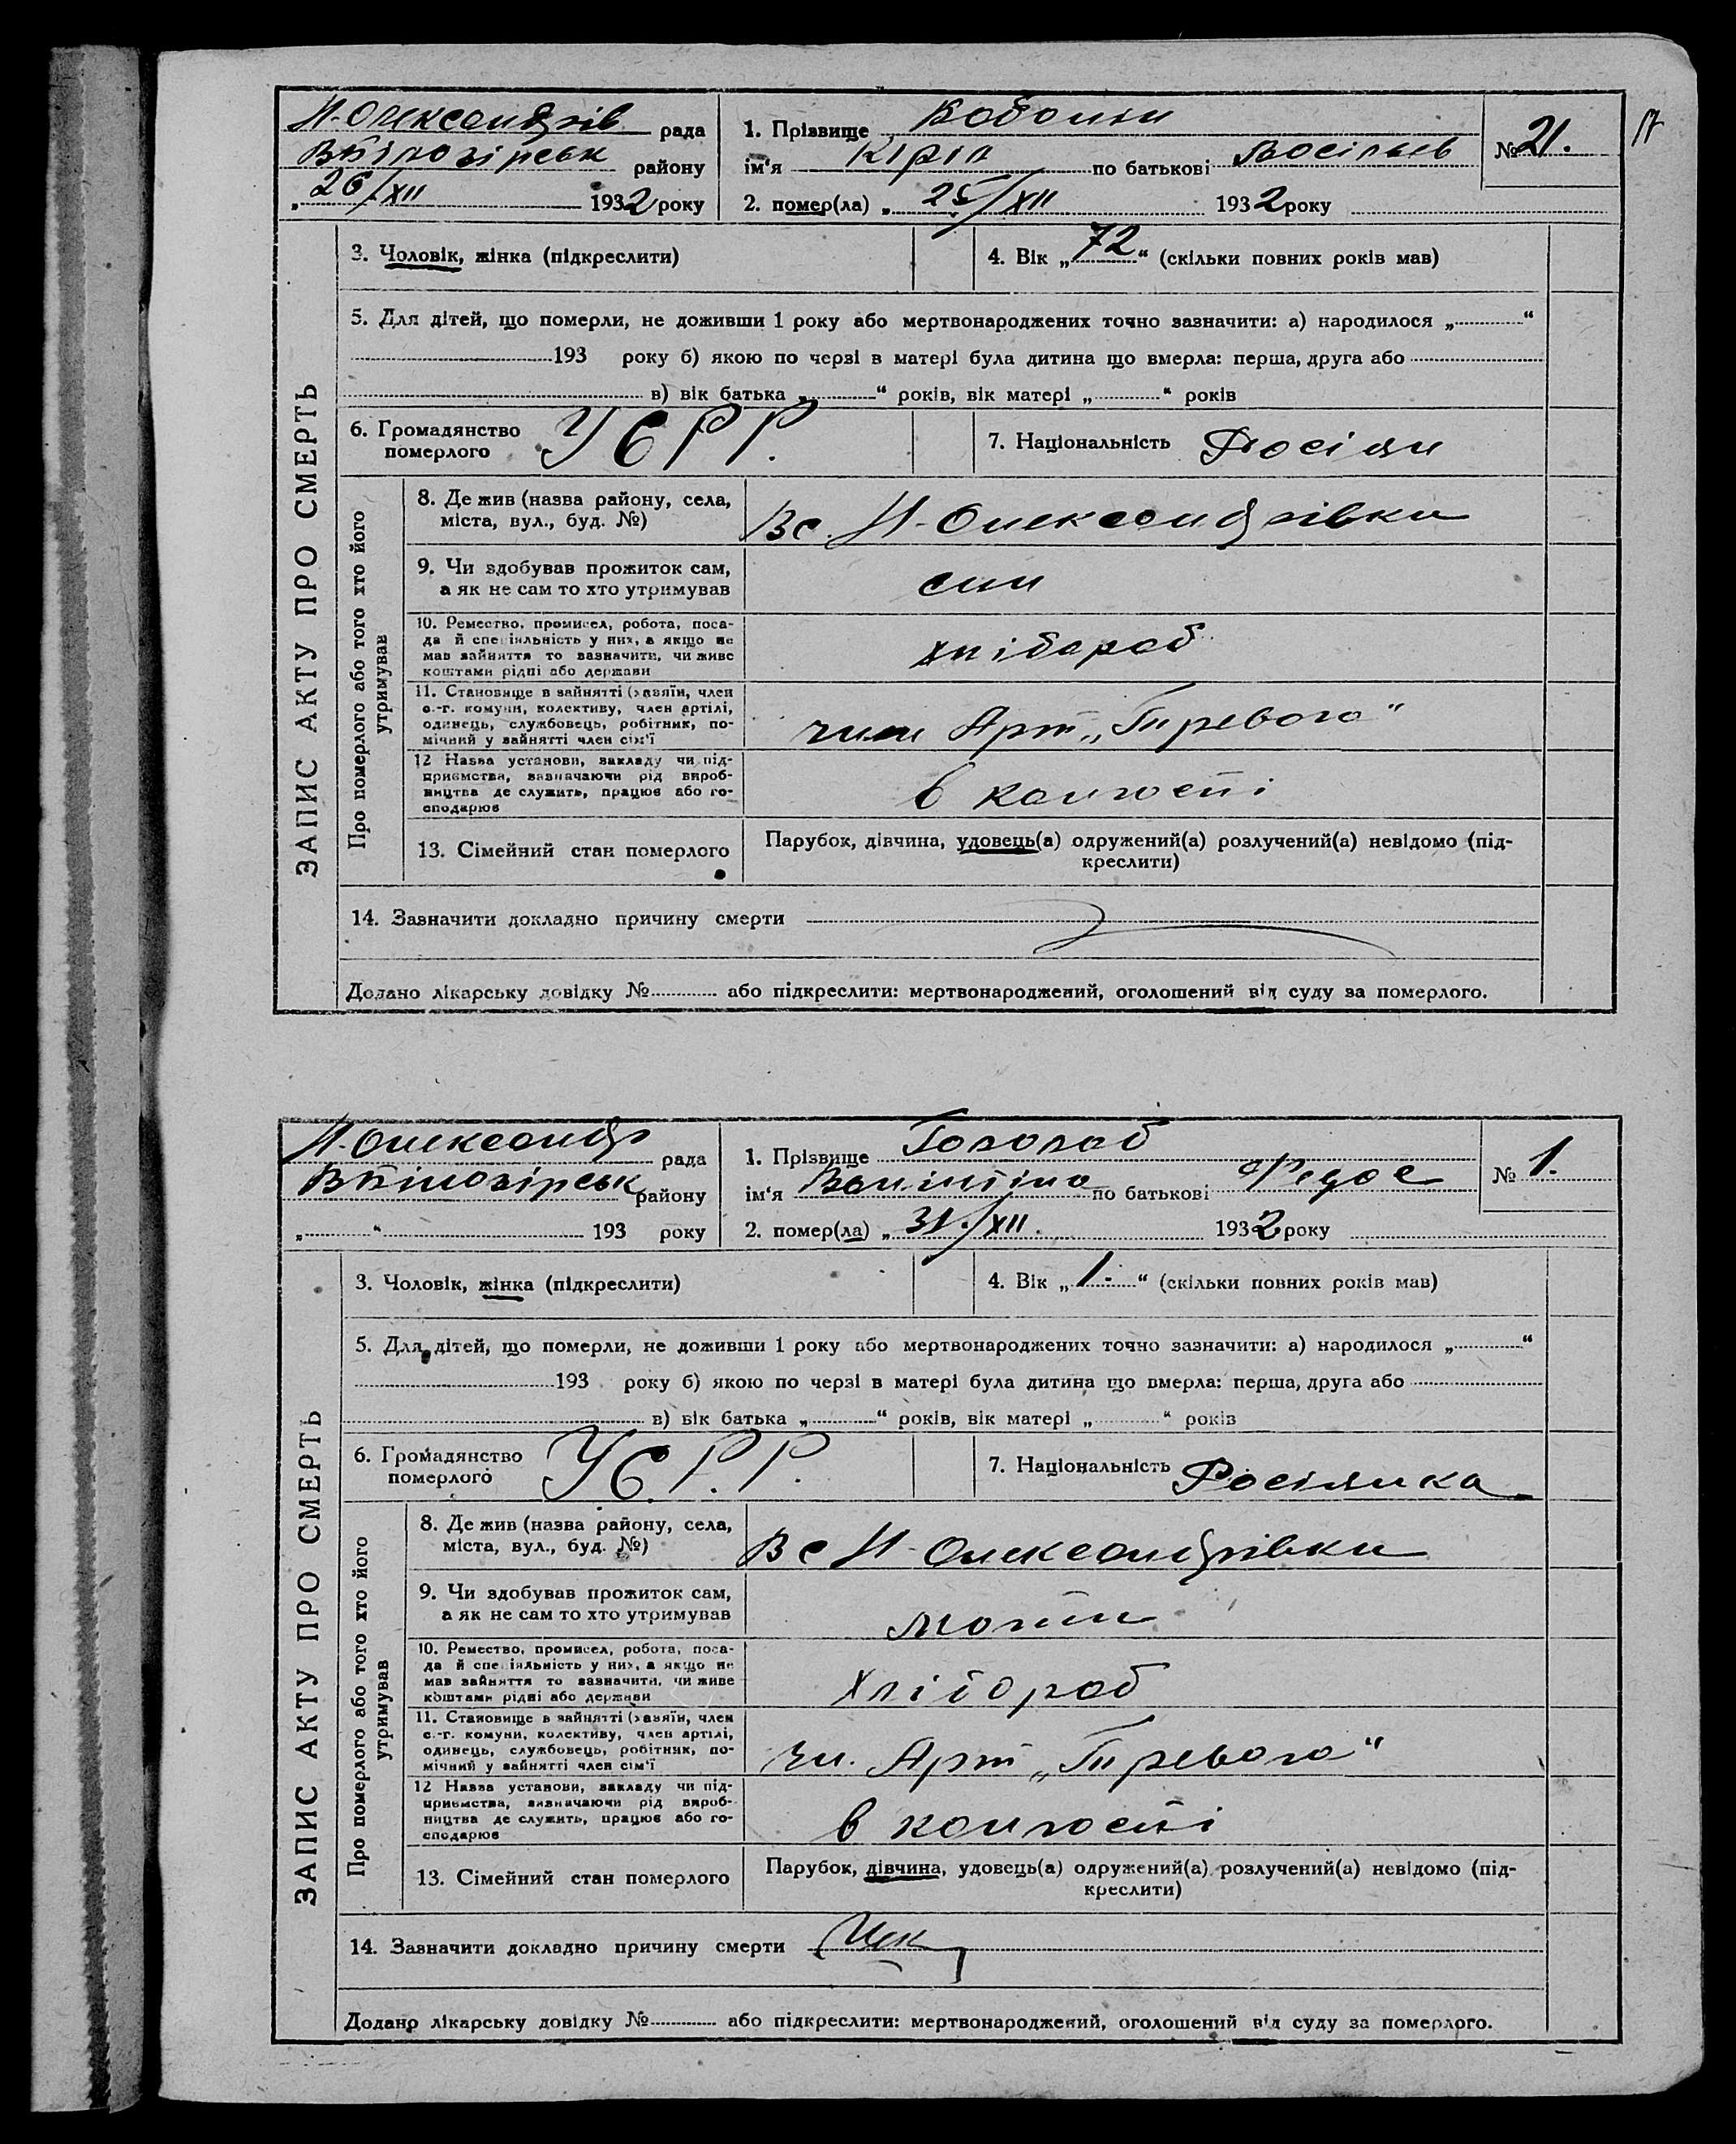 Н-Олександрів рада
району
26/XII 1932 року
1. Прізвище
ім'я Кіріл по батькові Васільєв
№ 21.
17
2. помер(ла) „ 25/XII 1932 року
3. Чоловік, жінка (підкреслити)
4. Вік „ 72 “ (скільки повних років мав)
5. Для дітей, що померли, не доживши 1 року або мертвонароджених точно зазначити: а) народилося „ “
193 року б) якою по черзі в матері була дитина що вмерла: перша, друга або
в) вік батька „ “ років, вік матері „ “ років
6. Громадянство
померлого
УСРР.
7. Національність Росіян
ЗАПИС АКТУ ПРО СМЕРТЬ
Про померлого або того хто його
утримував
8. Де жив (назва району, села,
міста, вул., буд. №)
В с. Н-Олександрівки
9. Чи здобував прожиток сам,
а як не сам то хто утримував
сам
10. Ремество, промисел, робота, поса-
да й спеціяльність у них, а якщо не
мав зайняття то зазначити, чи живе
коштами рідні або держави
хлібароб
11. Становище в зайнятті (хазяїн, член
с.-г. комуни, колективу, член артілі,
одинець, службовець, робітник, по-
мічний у зайнятті член сім'ї
член Арт „Тревога“
12 Назва установи, закладу чи під-
приємства, зазначаючи рід вироб-
ництва де служить, працює або го-
сподарює
в колгоспі
13. Сімейний стан померлого
Парубок, дівчина, удовець(а) одружений(а) розлучений(а) невідомо (під-
креслити)
14. Зазначити докладно причину смерти
Додано лікарську довідку № або підкреслити: мертвонароджений, оголошений від суду за померлого.
Н-Олександр рада
району
„ “ 193 року
1. Прізвище
ім'я Валінтіна по батькові Федос
№ 1.
2. помер(ла) „ 31/XII. 1932 року
3. Чоловік, жінка (підкреслити)
4. Вік „ 1. “ (скільки повних років мав)
5. Для дітей, що померли, не доживши 1 року або мертвонароджених точно зазначити: а) народилося „ “
193 року б) якою по черзі в матері була дитина що вмерла: перша, друга або
в) вік батька „ “ років, вік матері „ “ років
6. Громадянство
померлого
УСРР.
7. Національність Росіянка
ЗАПИС АКТУ ПРО СМЕРТЬ
Про померлого або того хто його
утримував
8. Де жив (назва району, села,
міста, вул., буд. №)
В с Н-Олександрівки
9. Чи здобував прожиток сам,
а як не сам то хто утримував
мати
10. Ремество, промисел, робота, поса-
да й спеціяльність у них, а якщо не
мав зайняття то зазначити, чи живе
коштами рідні або держави
хлібороб
11. Становище в зайнятті (хазяїн, член
с.-г. комуни, колективу, член артілі,
одинець, службовець, робітник, по-
мічний у зайнятті член сім'ї
чл. Арт „Тревога“
12 Назва установи, закладу чи під-
приємства, зазначаючи рід вироб-
ництва де служить, працює або го-
сподарює
в колгоспі
13. Сімейний стан померлого
Парубок, дівчина, удовець(а) одружений(а) розлучений(а) невідомо (під-
креслити)
14. Зазначити докладно причину смерти
Додано лікарську довідку № або підкреслити: мертвонароджений, оголошений від суду за померлого.